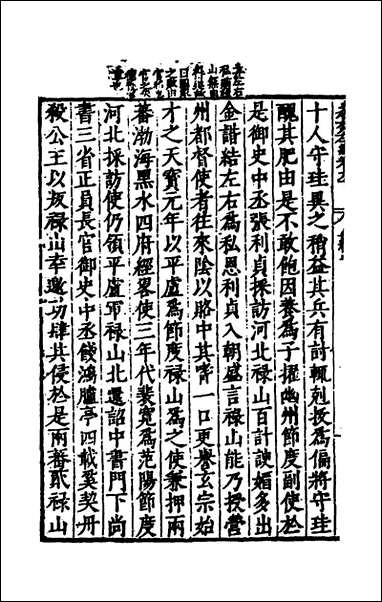 十人守珪異之稍益其兵有討輒剋拔為偏將守珪
醜其肥由是不敢飽因養為子擢幽州節度副使於
是御史中丞張利貞採訪河北祿山百計諛媚多出
金諧結左右為私恩利貞入朝盛言祿山能乃授營
州都督使者往來陰以賂中其嗜一口更譽玄宗始
才之天寶元年以平盧為節度祿山為之使兼押兩
蕃渤海黑水四府經畧使三年代裴寬為范陽節度
河北採訪使仍領平盧軍祿山北還詔中書門下尚
書三省正員長官御史中丞餞鴻臚亭四載奚契丹
殺公主以叛祿山幸邀功肆其侵於是兩蕃貳祿山